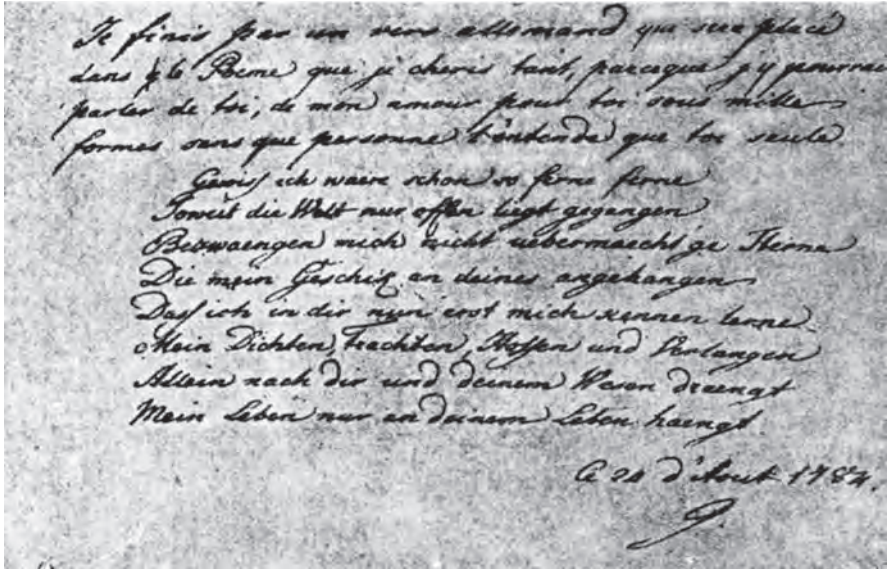 Je finis par un vers allemand qui sera placé
dans le Poeme que je cheris tant, parceque j'y pourrai
parler de toi, de mon amour pour toi sous mille
formes sans que personne l'entende que toi seule.
Gewiss ich waere schon so ferne ferne
Soweit die Welt nur offen liegt gegangen
Bezwaengen mich nicht uebermaecht'ge Sterne
Die mein Geschick an deines angehangen
Dass ich in dir nun erst mich kennen lerne.
Mein Dichten, Trachten, Hoffen und Verlangen
Allein nach dir und deinem Wesen draengt
Mein Leben nur an deinem Leben haengt
Ce 24 d'Aout 1784.
G.